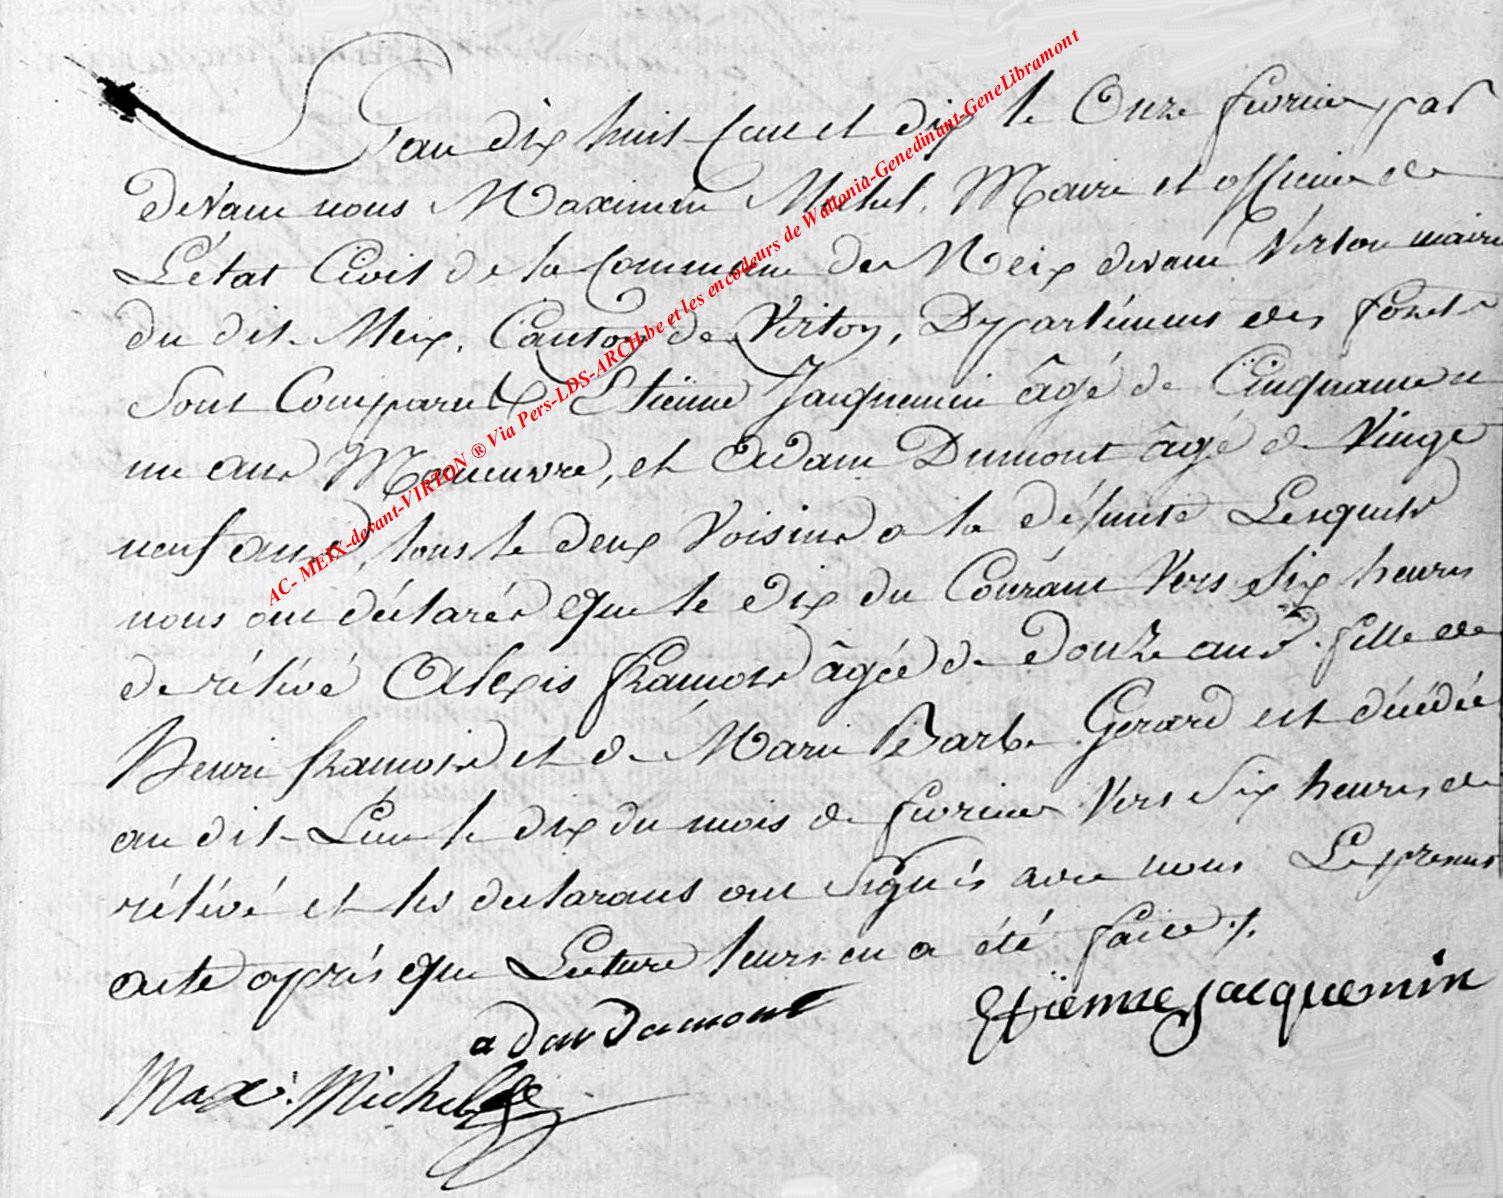 L'an dix huit cent et dix le Onze fevrier par
devant nous Maximin Michel, Maire et officier de
L'état Civil de la Commune de Meix devant Virton mairie
du dit Meix, Canton de Virton, Département des forets
Sont Comparut Etienne Jacquemin âgé de Cinquante et
un ans Manœuvre, et Adam Dumont âgé de Vingt
neuf ans, tous le deux Voisins a la défunte Lesquels
nous ont déclarés que le dix du Courant Vers Six heures
de rélivé Alexis francois âgée de douze ans fille de
Henri francois et de Marie Barbe Gerard est décédée
au dit Lieu le dix du mois de fevrier Vers Six heures de
rélivé et les declarans ont Signés avec nous Le present
acte après que Lecture leurs en a été faite ./.
adan dumont
Etienne jacquemin
Max: Michel
AC- MEIX-devant-VIRTON ® Via Pers-LDS-ARCH.be et les encodeurs de Wallonia-Genedinant-GeneLibramont